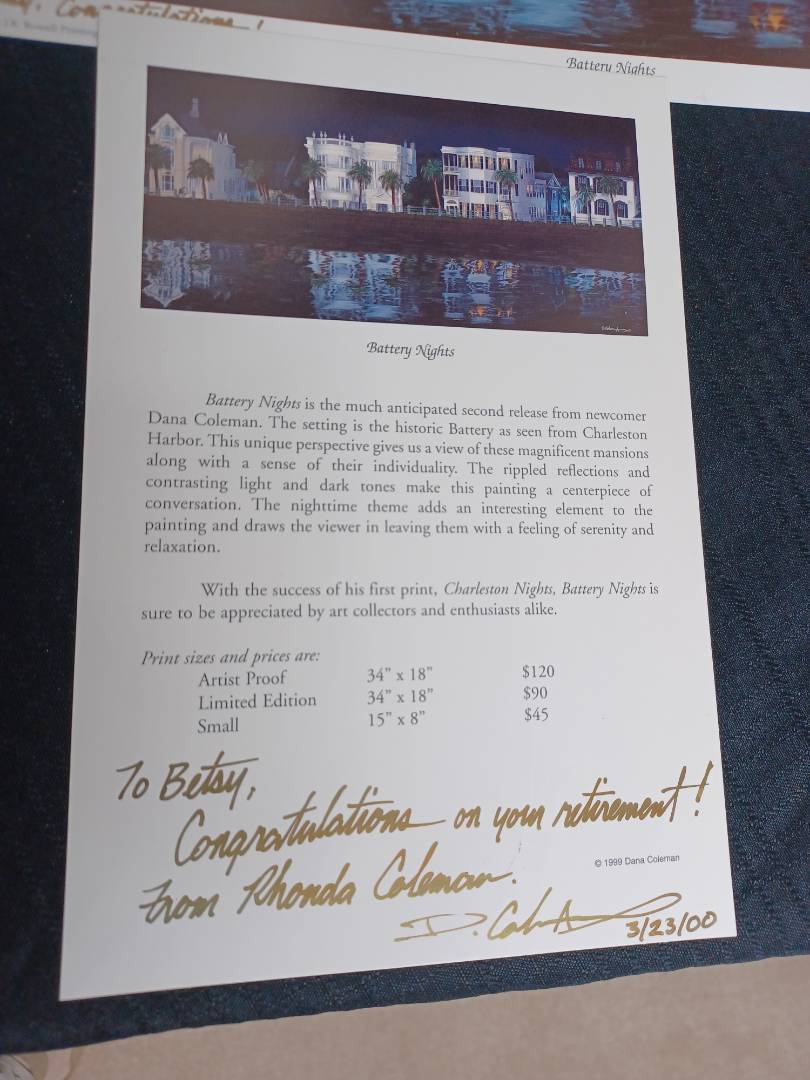 Congratulations !
Battery Nights
Battery Nights
Battery Nights is the much anticipated second release from newcomer
Dana Coleman. The setting is the historic Battery as seen from Charleston
Harbor. This unique perspective gives us a view of these magnificent mansions
along with a sense of their individuality. The rippled reflections and
contrasting light and dark tones make this painting a centerpiece of
conversation. The nighttime theme adds an interesting element to the
painting and draws the viewer in leaving them with a feeling of serenity and
relaxation.
With the success of his first print, Charleston Nights, Battery Nights is
sure to be appreciated by art collectors and enthusiasts alike.
Print sizes and prices are:
Artist Proof 34" x 18" $120
Limited Edition 34" x 18" $90
Small 15" x 8" $45
To Betsy,
Congratulations on your retirement!
From Rhonda Coleman.
© 1999 Dana Coleman
D. 3/23/00